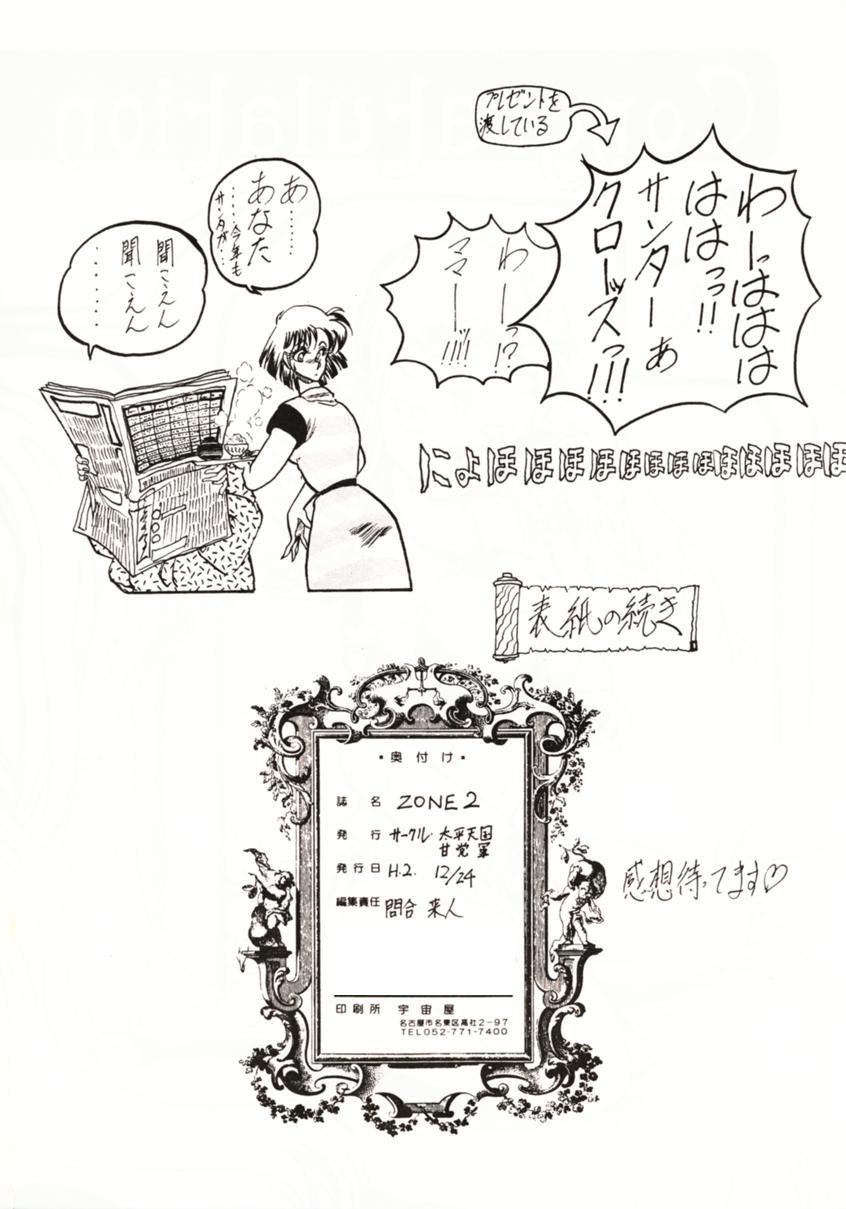 プレゼントを
渡している
わーっははは
ははっっ!!
サンターぁ
クローッスっ!!!
わーっ!?
ママーッ!!!!
あ……
あなた
……今年も
サンタが…
聞こえん
聞こえん
……
にょほほほほほほほほほほほほほ
表紙の続き
・奥付け・
誌 名 ZONE2
発 行 サークル・太平天国
甘党軍
発行日 H.2. 12/24
編集責任 問合 来人
印刷所 宇宙屋
名古屋市名東区高社2-97
TEL052-771-7400
感想待ってます♡